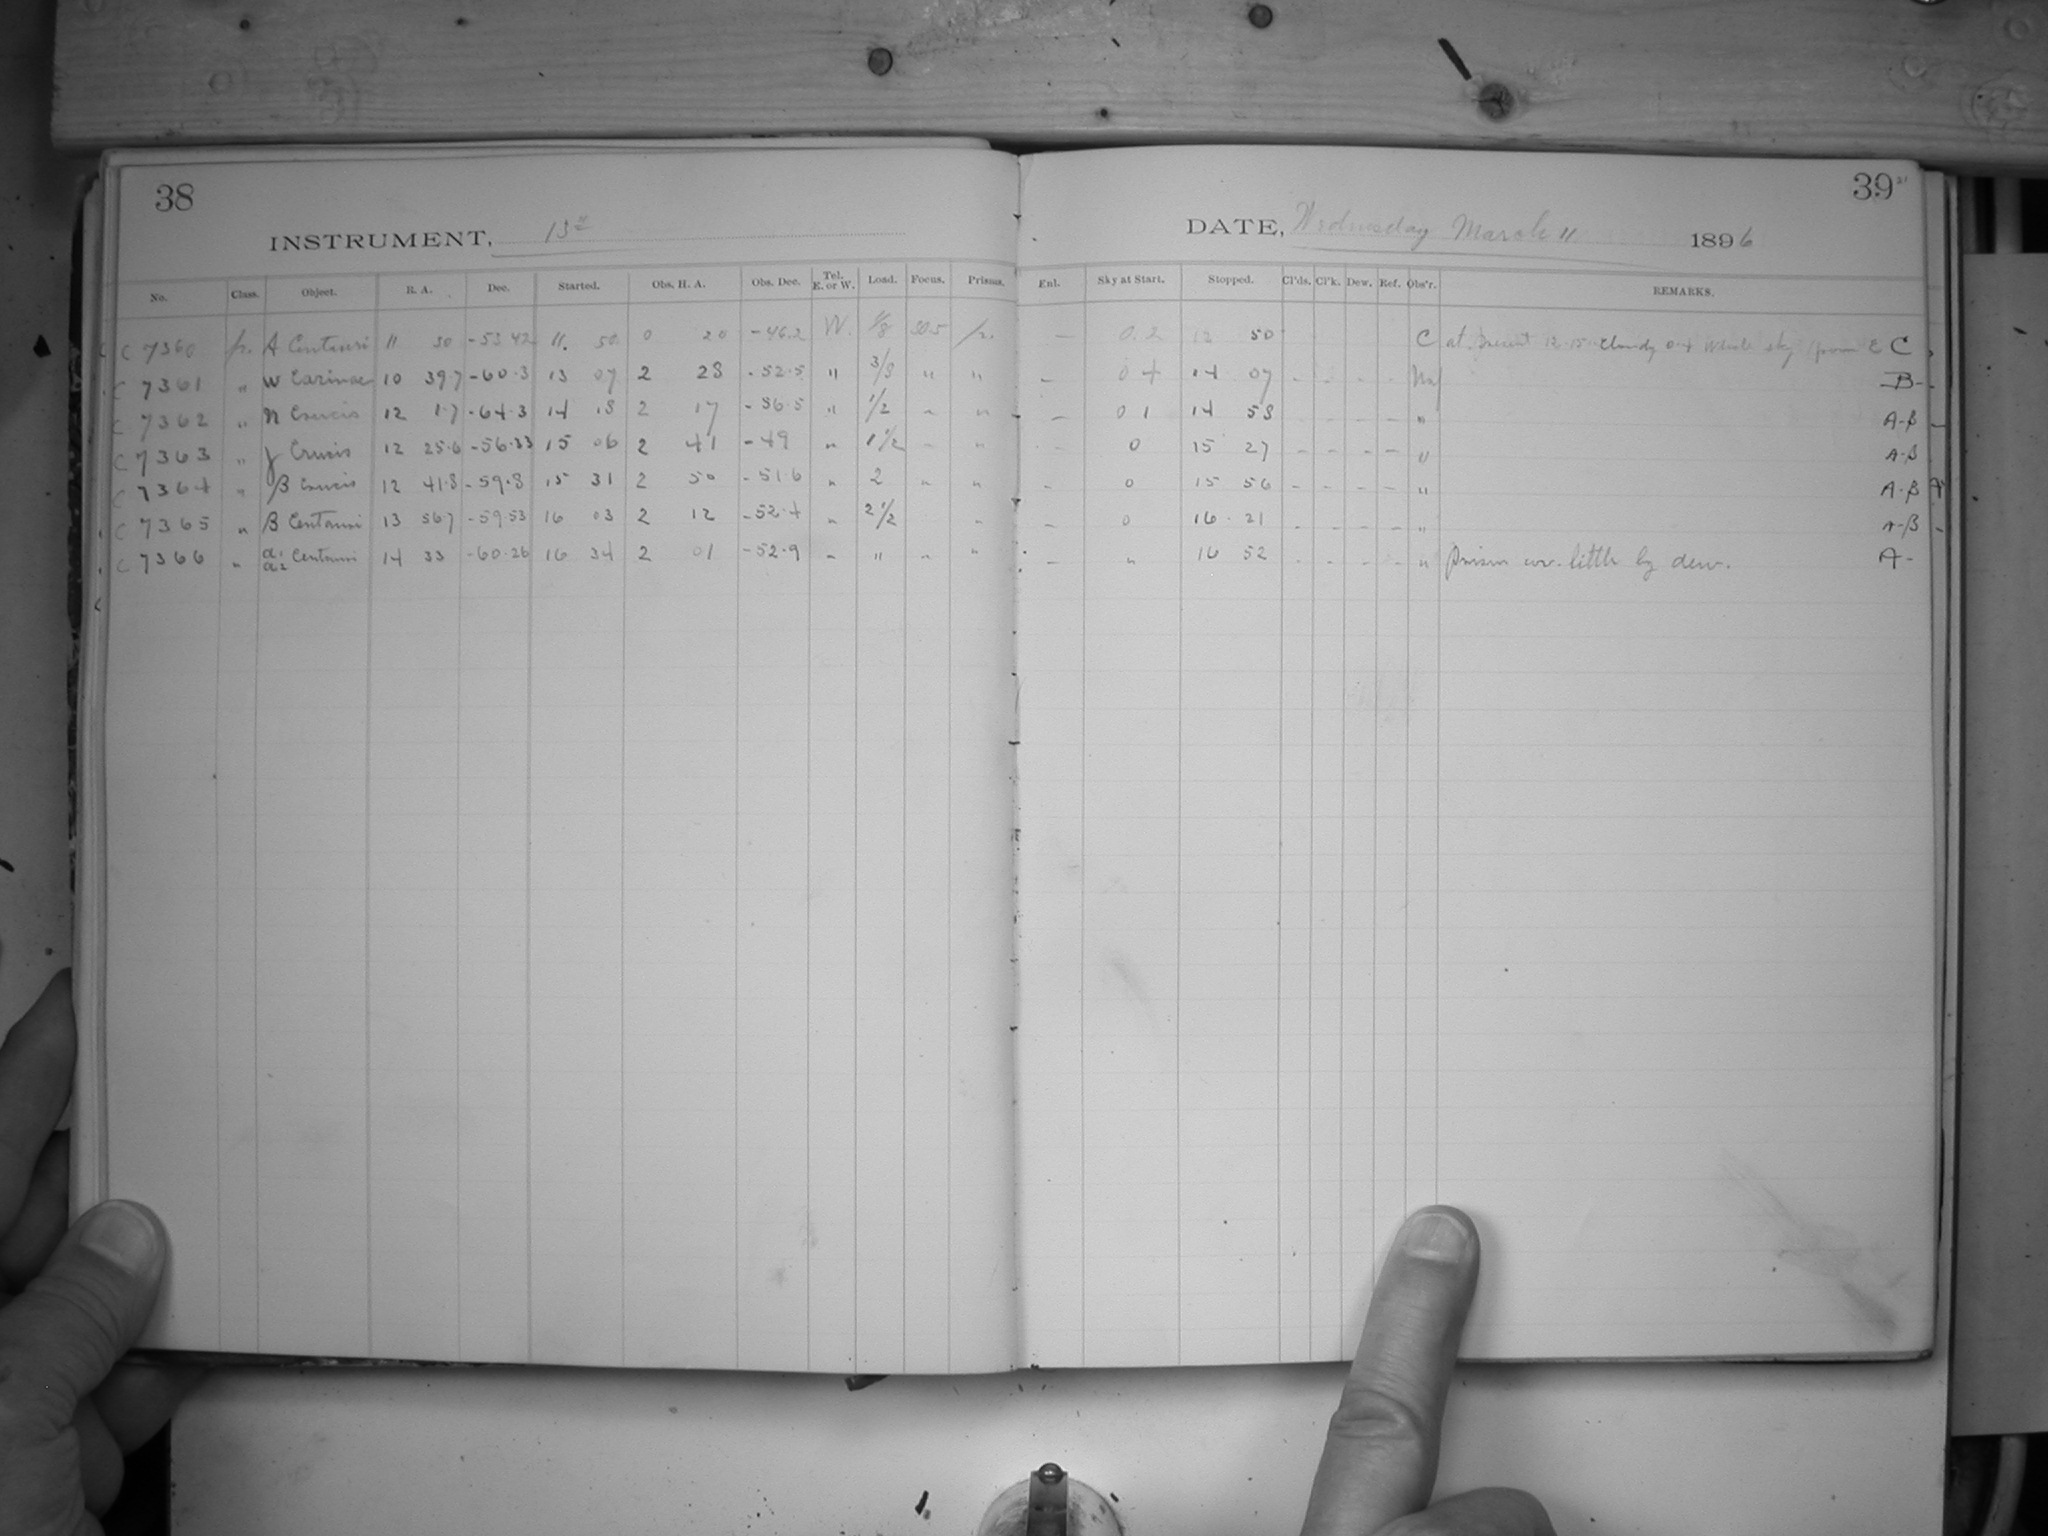 38
INSTRUMENT, 13"
No. Class. Object. R. A. Dec. Started. Obs. H. A. Obs. Dec. Tel. E. or W. Load. Focus. Prisms.
C 7360 pr. A Centauri 11 30 -53 42 11. 50 0 20 -46.2 W. 50.5 pr.
C 7361 " W Carinae 10 39.7 -60.3 13 07 2 28 -52.5 " 3/8 " "
C 7362 " N Crucis 12 1.7 -64.3 14 18 2 17 -56.5 " 1/2 " "
C 7363 " γ Crucis 12 25.6 -56.33 15 06 2 41 -49 " 1 1/2 - "
C 7364 " β Crucis 12 41.8 -59.8 15 31 2 50 -51.6 " 2 " "
C 7365 " B Centauri 13 56.7 -59 53 16 03 2 12 -52.4 " 2 1/2 "
C 7366 " α1 α2 Centauri 14 33 -60.26 16 34 2 01 -52.9 " " " "
39
DATE, Wednesday March 11 1896
Enl. Sky at Start. Stopped. Cl'ds. Cl'k. Dew. Ref. Obs'r. REMARKS.
— 0.2 12 50 C at Present 12.15. Cloudy 0.4 Whole sky from E C
- 0 4 14 07 - - - - B-
- 0 1 14 58 - - - - " A-B
- 0 15 27 - - - - " A-B
- 0 15 56 - - - - " A-B
- 0 16 21 - - - - " A-B
- " 16 52 - - - - " Prism cov. little by dew. A-